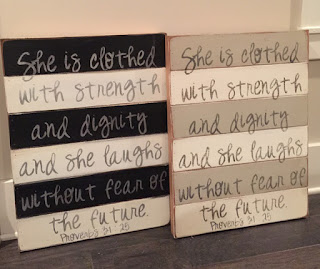 She is clothed
with strength
and dignity
and she laughs
without fear of
the future.
Proverbs 31:25
She is clothed
with strength
and dignity
and she laughs
without fear of
the future.
Proverbs 31:25